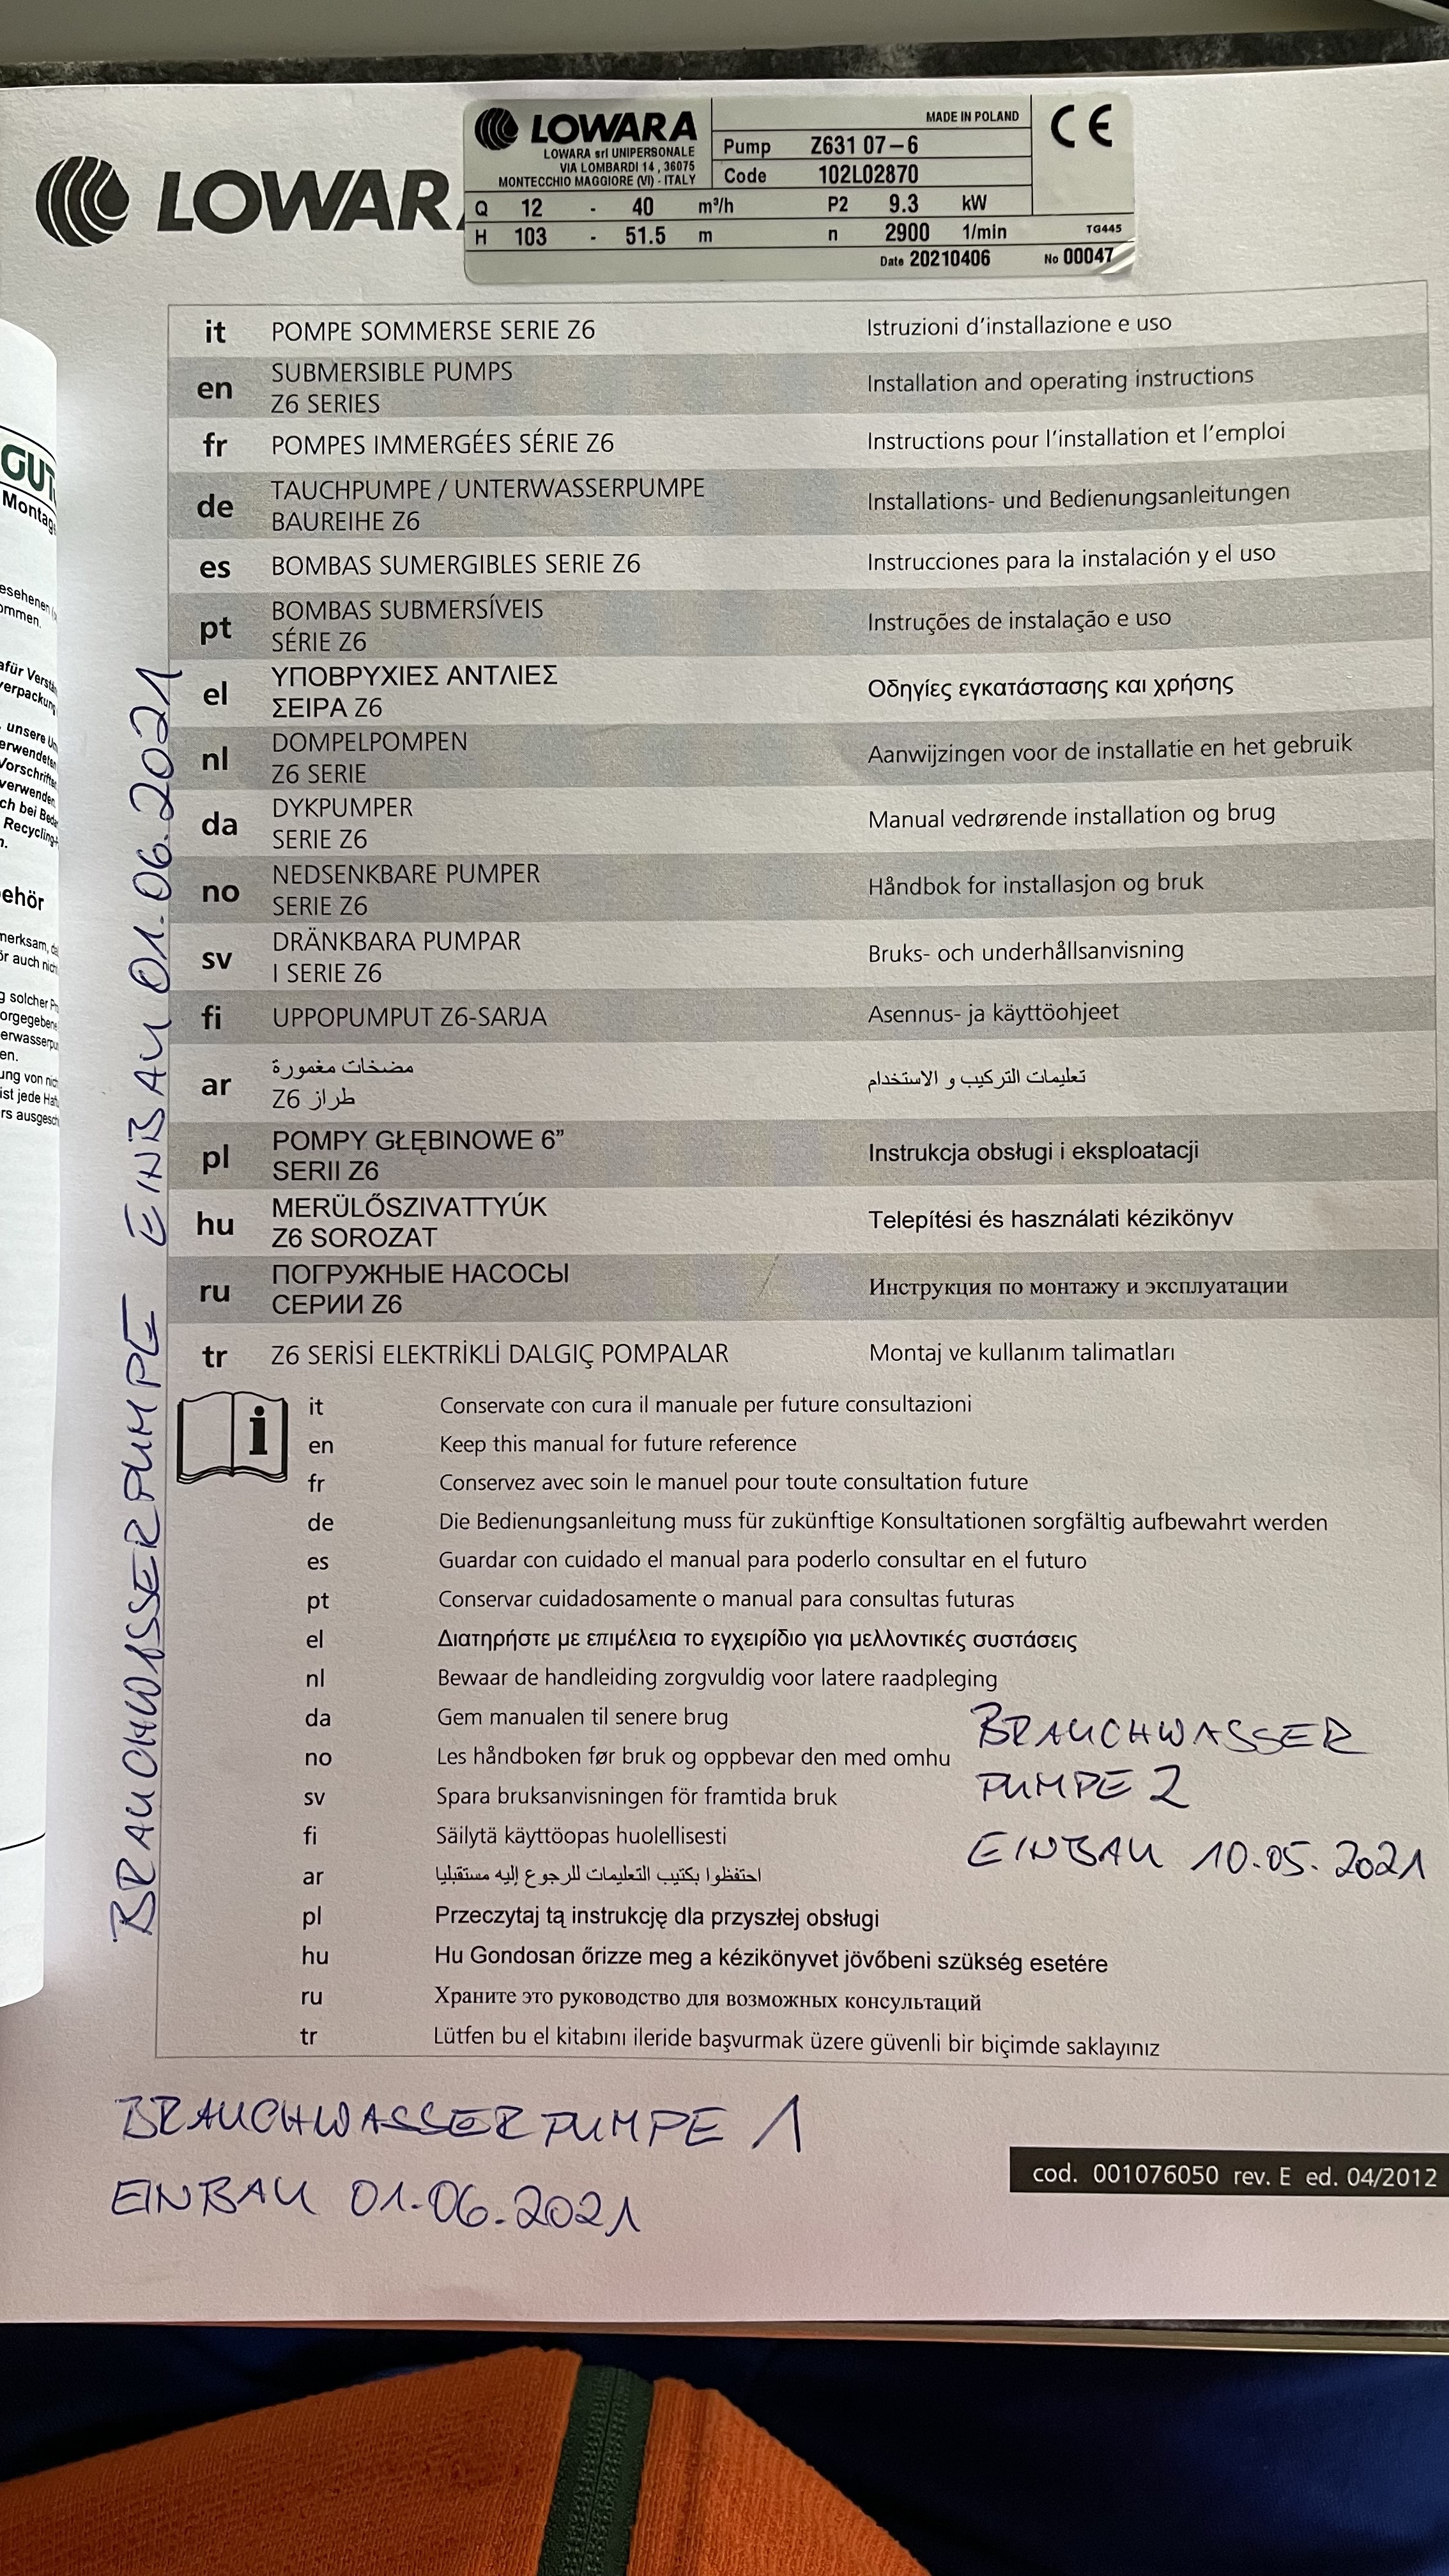 LOWARA
LOWARA
LOWARA srl UNIPERSONALE
VIA LOMBARDI 14 , 36075
MONTECCHIO MAGGIORE (VI) - ITALY
MADE IN POLAND
Pump Z631 07-6
Code 102L02870
CE
Q 12 - 40 m³/h P2 9.3 kW
H 103 - 51.5 m n 2900 1/min TG445
Date 20210406 No 00047
it POMPE SOMMERSE SERIE Z6 Istruzioni d'installazione e uso
en SUBMERSIBLE PUMPS
Z6 SERIES Installation and operating instructions
fr POMPES IMMERGÉES SÉRIE Z6 Instructions pour l'installation et l'emploi
de TAUCHPUMPE / UNTERWASSERPUMPE
BAUREIHE Z6 Installations- und Bedienungsanleitungen
es BOMBAS SUMERGIBLES SERIE Z6 Instrucciones para la instalación y el uso
pt BOMBAS SUBMERSÍVEIS
SÉRIE Z6 Instruções de instalação e uso
el ΥΠΟΒΡΥΧΙΕΣ ΑΝΤΛΙΕΣ
ΣΕΙΡΑ Z6 Οδηγίες εγκατάστασης και χρήσης
nl DOMPELPOMPEN
Z6 SERIE Aanwijzingen voor de installatie en het gebruik
da DYKPUMPER
SERIE Z6 Manual vedrørende installation og brug
no NEDSENKBARE PUMPER
SERIE Z6 Håndbok for installasjon og bruk
sv DRÄNKBARA PUMPAR
I SERIE Z6 Bruks- och underhållsanvisning
fi UPPOPUMPUT Z6-SARJA Asennus- ja käyttöohjeet
ar مضخات مغمورة
طراز Z6 تعليمات التركيب و الاستخدام
pl POMPY GŁĘBINOWE 6”
SERII Z6 Instrukcja obsługi i eksploatacji
hu MERÜLŐSZIVATTYÚK
Z6 SOROZAT Telepítési és használati kézikönyv
ru ПОГРУЖНЫЕ НАСОСЫ
СЕРИИ Z6 Инструкция по монтажу и эксплуатации
tr Z6 SERİSİ ELEKTRİKLİ DALGIÇ POMPALAR Montaj ve kullanım talimatları
i
it Conservate con cura il manuale per future consultazioni
en Keep this manual for future reference
fr Conservez avec soin le manuel pour toute consultation future
de Die Bedienungsanleitung muss für zukünftige Konsultationen sorgfältig aufbewahrt werden
es Guardar con cuidado el manual para poderlo consultar en el futuro
pt Conservar cuidadosamente o manual para consultas futuras
el Διατηρήστε με επιμέλεια το εγχειρίδιο για μελλοντικές συστάσεις
nl Bewaar de handleiding zorgvuldig voor latere raadpleging
da Gem manualen til senere brug
no Les håndboken før bruk og oppbevar den med omhu
sv Spara bruksanvisningen för framtida bruk
fi Säilytä käyttöopas huolellisesti
ar احتفظوا بكتيب التعليمات للرجوع إليه مستقبليا
pl Przeczytaj tą instrukcję dla przyszłej obsługi
hu Hu Gondosan őrizze meg a kézikönyvet jövőbeni szükség esetére
ru Храните это руководство для возможных консультаций
tr Lütfen bu el kitabını ileride başvurmak üzere güvenli bir biçimde saklayınız
BRAUCHWASSER
PUMPE 2
EINBAU 10.05.2021
BRAUCHWASSERPUMPE EINBAU 01.06.2021
BRAUCHWASSERPUMPE 1
EINBAU 01.06.2021
cod. 001076050 rev. E ed. 04/2012